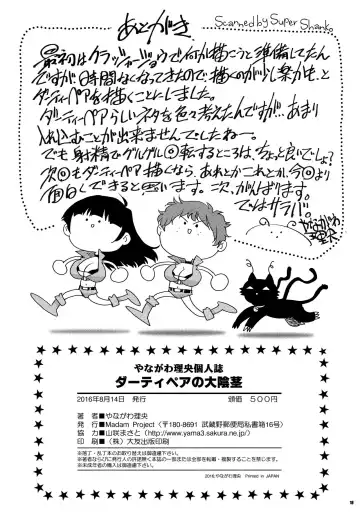 あとがき
Scanned by Super Shanko.
最初はクラッシャージョウで何か描こうと準備してたん
ですが時間なくなってきたので、描くのが少し楽かも、と
ダーティペアを描くことにしました。
ダーティペアらしいネタを色々考えたんですが…あまり
入れ込むことが出来ませんでしたねー。
でも射精でグルグル回転するところは、ちょっと良いでしょ?
次回もダーティペア描くなら、あれとかこれとか、今回より
面白くできると思います。次、がんばります。
ではサラバ。
やながわ理央
やながわ理央個人誌
ダーティペアの大陰茎
2016年8月14日 発行 頒価 500円
著 者■やながわ理央
発 行■Madam Project〈〒180-8691 武蔵野郵便局私書箱16号〉
協 力■山咲まさと〈http://www.yama3.sakura.ne.jp/〉
印 刷■(株)大友出版印刷
※落丁・乱丁本のお取り替えは直接行って下さい。
※著者ならびに発行人の許諾無く本誌の一部または全部を転載・複製することを固く禁じます。
※未成年者の購入は御遠慮下さい。
2016.やながわ理央 Printed in JAPAN